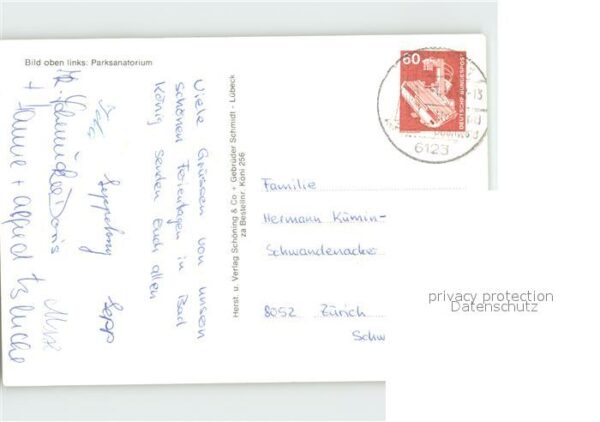 Bild oben links: Parksanatorium
Viele Grüssen von unsern
schönen Ferientagen in Bad
König senden Euch allen
Sepp
+ Hanne + Alfred
Doris
Herst. u. Verlag Schöning & Co + Gebrüder Schmidt - Lübeck
za Bestellnr. Köni 256
60
DEUTSCHE BUNDESPOST
6123
Familie
Hermann Kümin-
Schwandenacker
8052 Zürich
Schw
privacy protection
Datenschutz